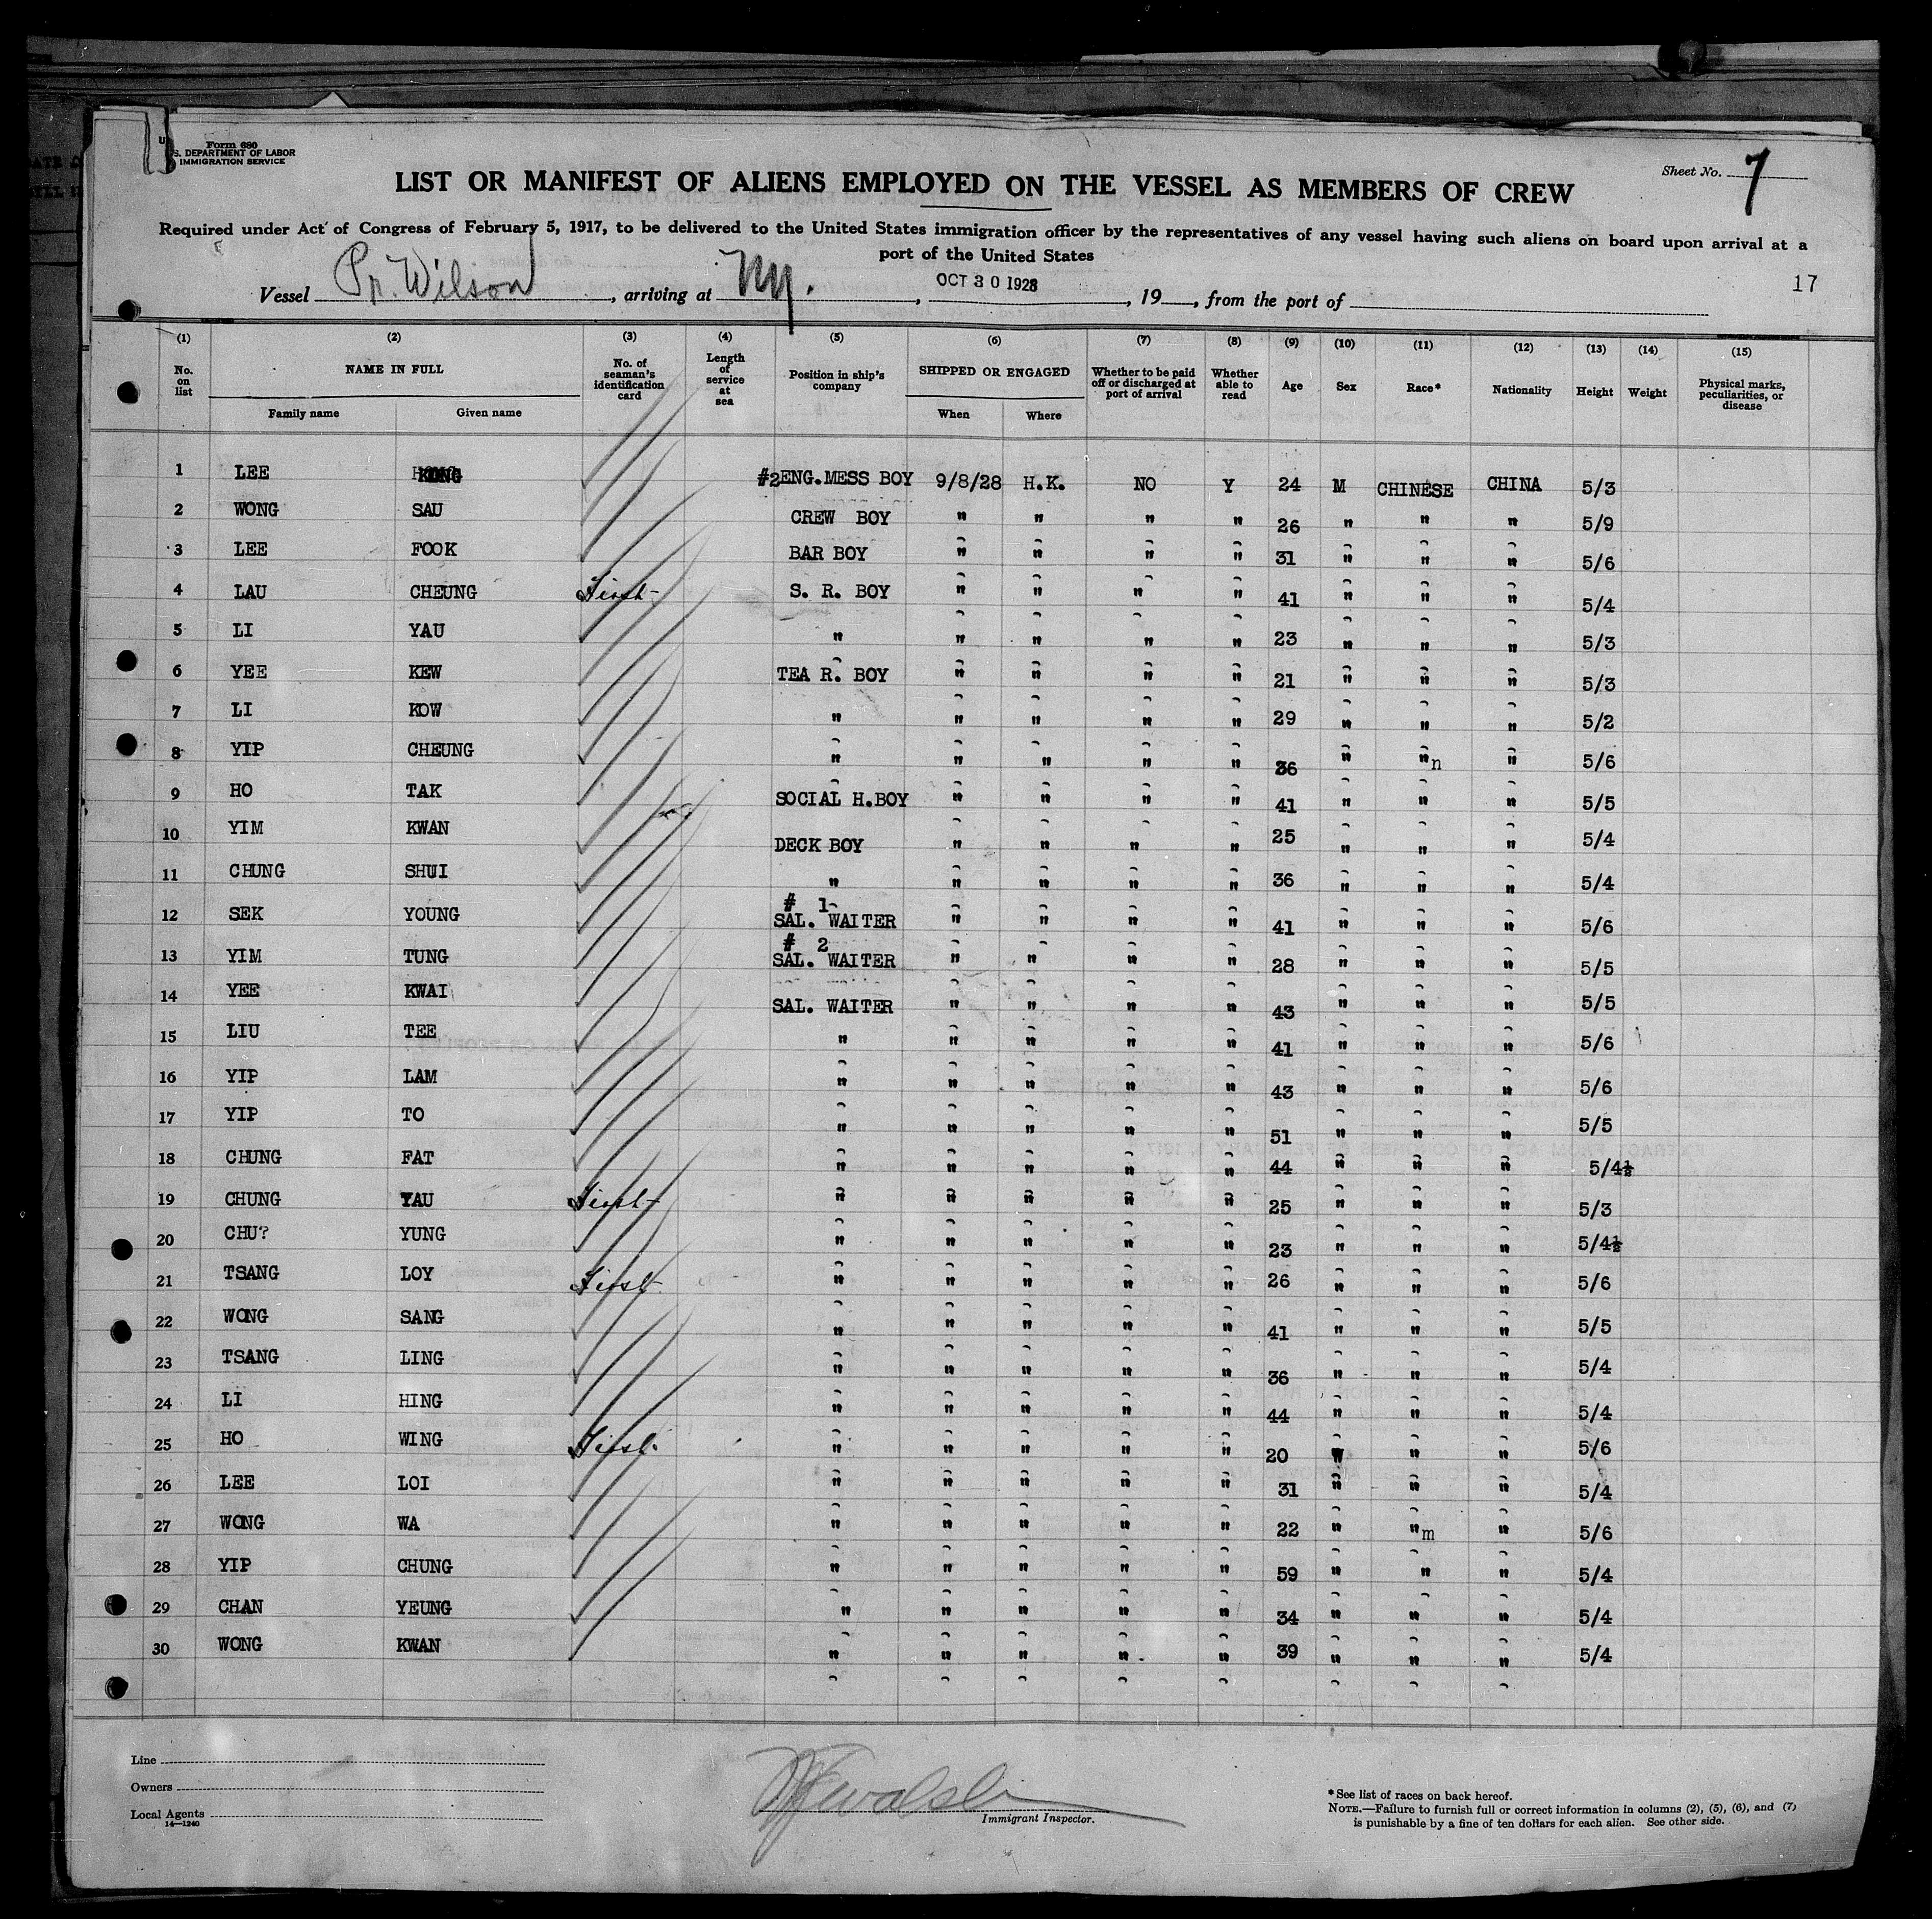 Form 680
U. S. DEPARTMENT OF LABOR
IMMIGRATION SERVICE
Sheet No. 7
LIST OR MANIFEST OF ALIENS EMPLOYED ON THE VESSEL AS MEMBERS OF CREW
Required under Act of Congress of February 5, 1917, to be delivered to the United States immigration officer by the representatives of any vessel having such aliens on board upon arrival at a
port of the United States
17
Vessel Pr. Wilson, arriving at NY., OCT 30 1928, 19, from the port of
(1) (2) (3) (4) (5) (6) (7) (8) (9) (10) (11) (12) (13) (14) (15)
No. on list NAME IN FULL Family name Given name No. of seaman's identification card Length of service at sea Position in ship's company SHIPPED OR ENGAGED When Where Whether to be paid off or discharged at port of arrival Whether able to read Age Sex Race* Nationality Height Weight Physical marks, peculiarities, or disease
1 LEE #2ENG.MESS BOY 9/8/28 H.K. NO Y 24 M CHINESE CHINA 5/3
2 WONG SAU CREW BOY " " " " 26 " " " 5/9
3 LEE FOOK BAR BOY " " " " 31 " " " 5/6
4 LAU CHEUNG First S. R. BOY " " " " 41 " " " 5/4
5 LI YAU " " " " " 23 " " " 5/3
6 YEE KEW TEA R. BOY " " " " 21 " " " 5/3
7 LI KOW " " " " " 29 " " " 5/2
8 YIP CHEUNG " " " " " 36 " "n " 5/6
9 HO TAK SOCIAL H.BOY " " " " 41 " " " 5/5
10 YIM KWAN DECK BOY " " " " 25 " " " 5/4
11 CHUNG SHUI " " " " " 36 " " " 5/4
12 SEK YOUNG # 1 SAL. WAITER " " " " 41 " " " 5/6
13 YIM TUNG # 2 SAL. WAITER " " " " 28 " " " 5/5
14 YEE KWAI SAL. WAITER " " " " 43 " " " 5/5
15 LIU TEE " " " " " 41 " " " 5/6
16 YIP LAM " " " " " 43 " " " 5/6
17 YIP TO " " " " " 51 " " " 5/5
18 CHUNG FAT " " " " " 44 " " " 5/4½
19 CHUNG YAU First " " " " " 25 " " " 5/3
20 CHU? YUNG " " " " " 23 " " " 5/4½
21 TSANG LOY First " " " " " 26 " " " 5/6
22 WONG SANG " " " " " 41 " " " 5/5
23 TSANG LING " " " " " 36 " " " 5/4
24 LI HING " " " " " 44 " " " 5/4
25 HO WING First " " " " " 20 " " " 5/6
26 LEE LOI " " " " " 31 " " " 5/4
27 WONG WA " " " " " 22 " "m " 5/6
28 YIP CHUNG " " " " " 59 " " " 5/4
29 CHAN YEUNG " " " " " 34 " " " 5/4
30 WONG KWAN " " " " " 39 " " " 5/4
Line
Owners
Local Agents
14—1240
Immigrant Inspector.
* See list of races on back hereof.
NOTE.—Failure to furnish full or correct information in columns (2), (5), (6), and (7)
is punishable by a fine of ten dollars for each alien. See other side.